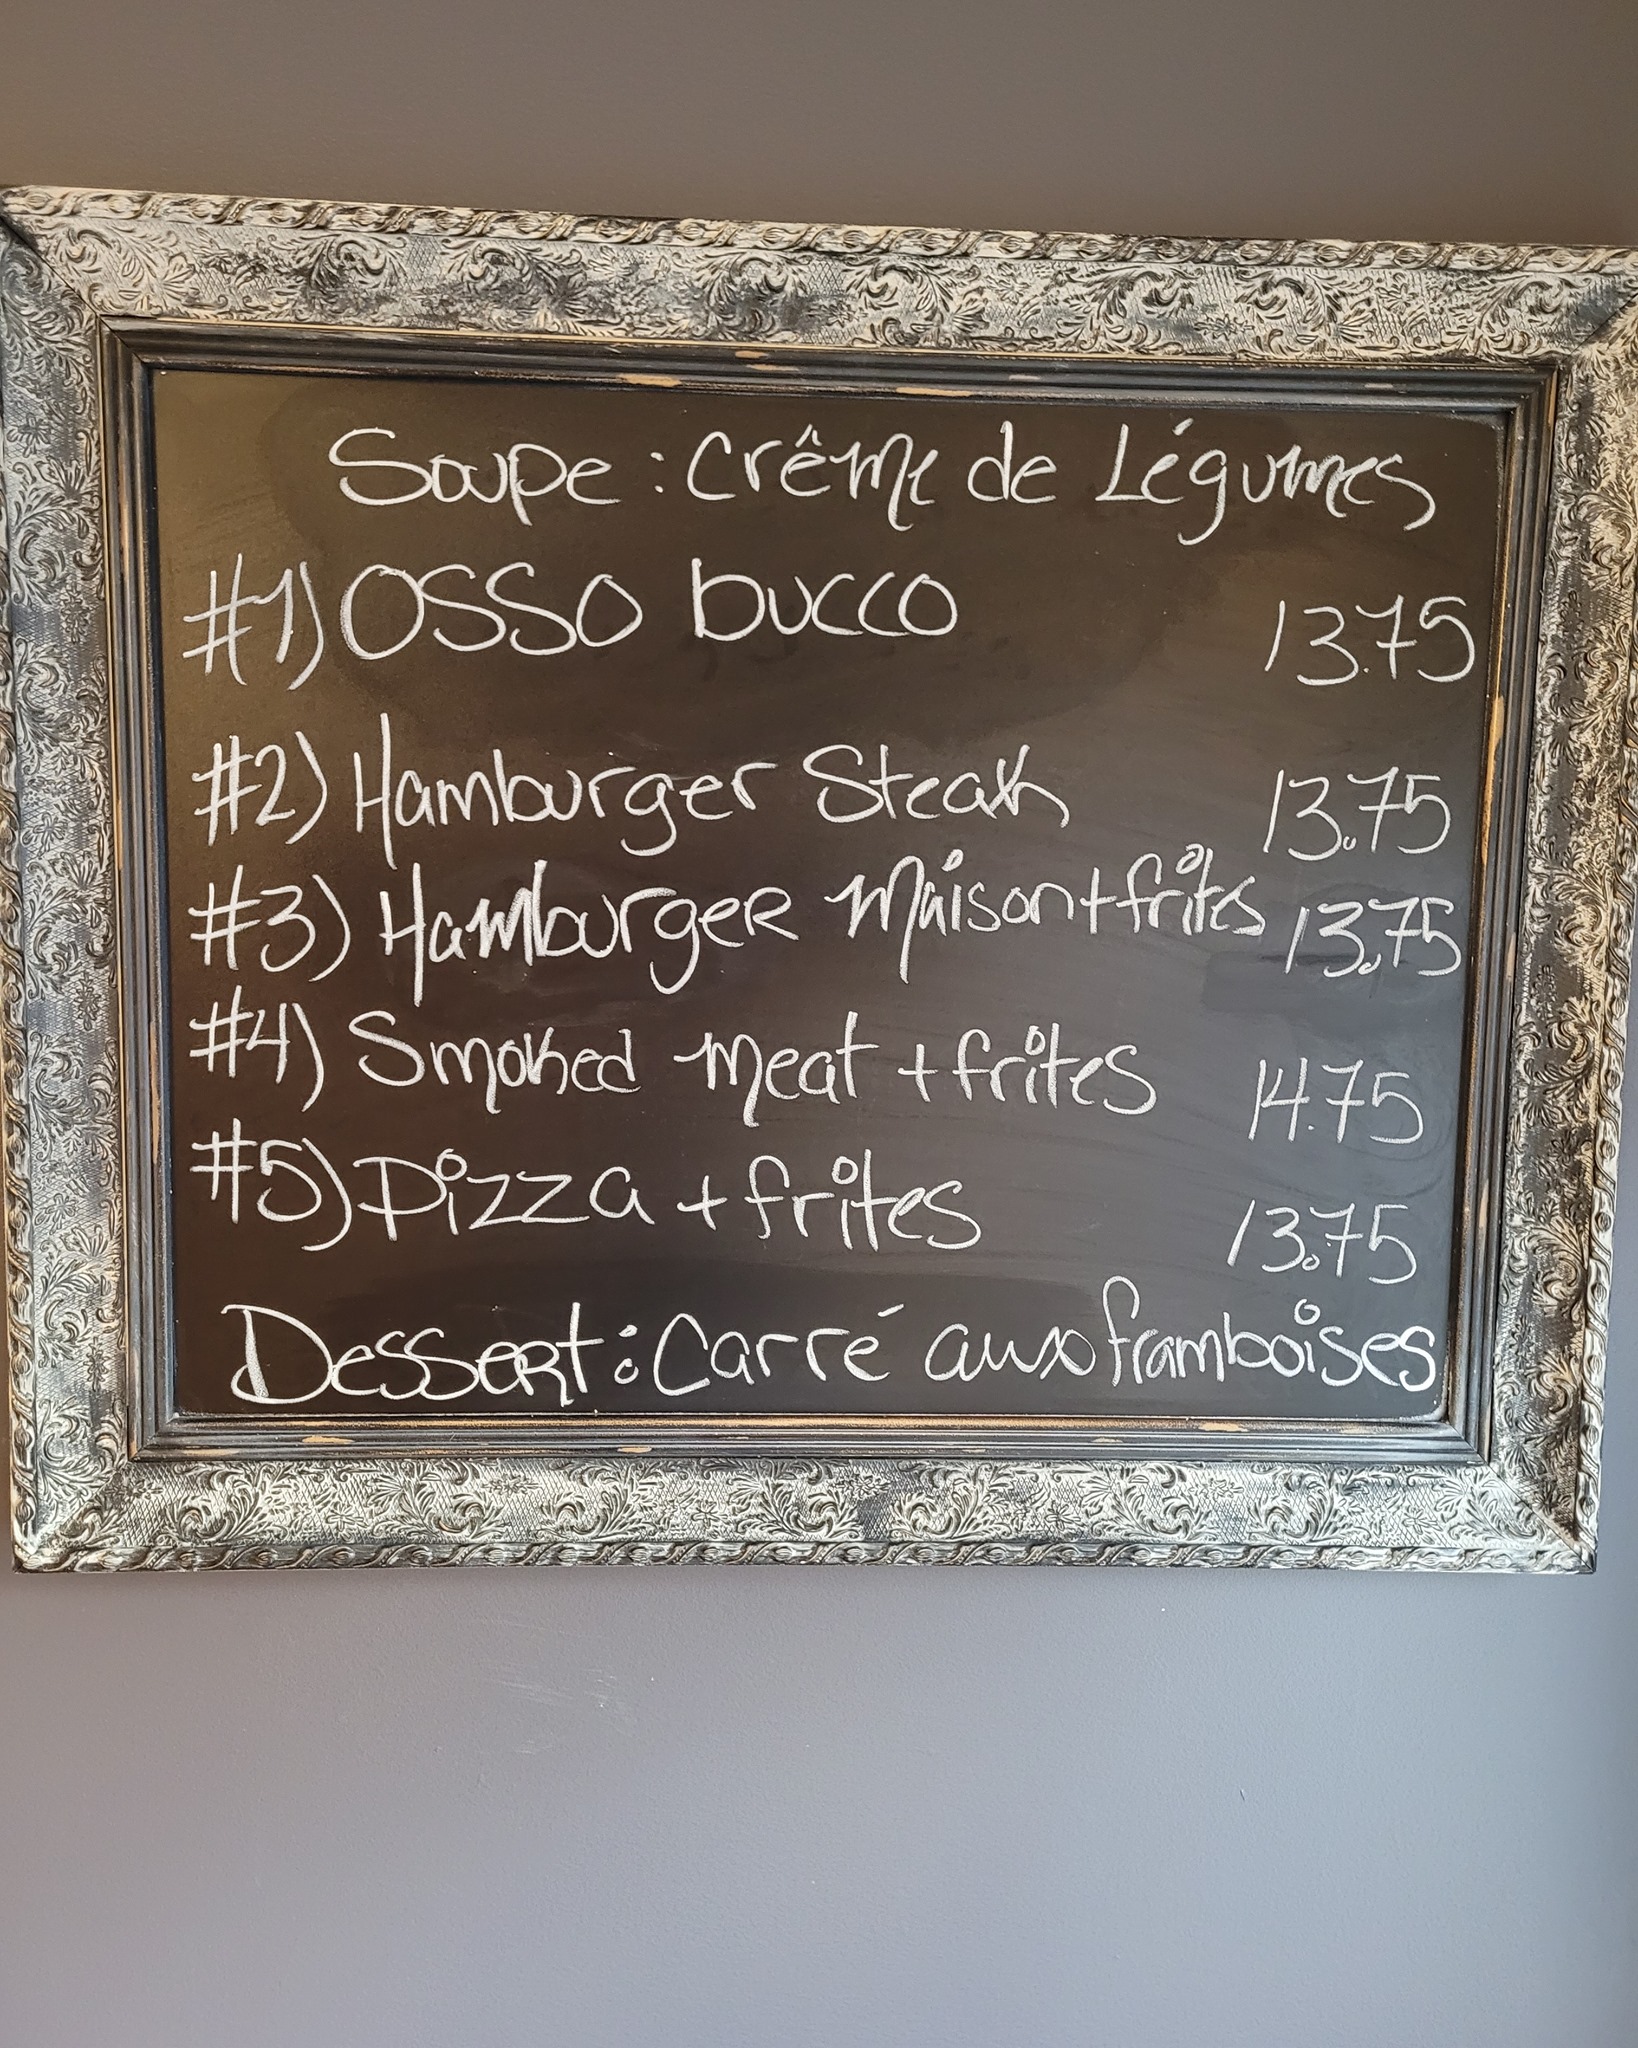 Soupe : Crême de Légumes
#1) Osso bucco 13.75
#2) Hamburger Steak 13.75
#3) Hamburger Maison + frites 13.75
#4) Smoked meat + frites 14.75
#5) Pizza + frites 13.75
Dessert : Carré aux framboises